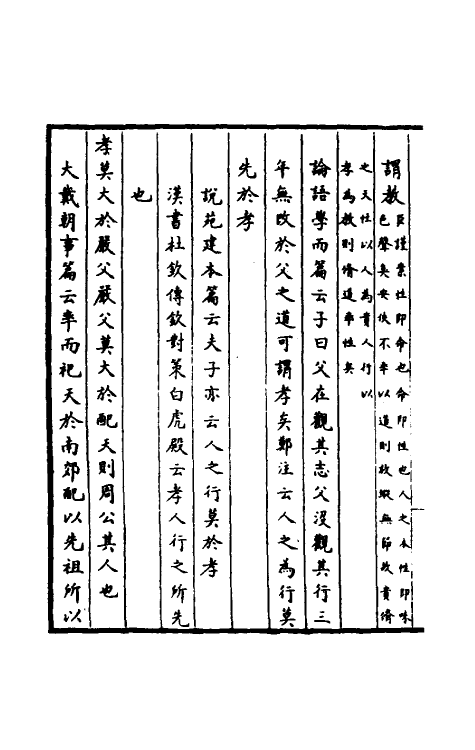 謂教臣謹案性即命也命即性也人之本性即味
色聲臭安佚不率以道則放蝦無節故貴脩
之天性以人為貴人行以
孝為教則脩道率性矣
論語學而篇云子曰父在觀其志父沒觀其行三
年無改於父之道可謂孝矣鄭注云人之為行莫
先於孝
說苑建本篇云夫子亦云人之行莫於孝
漢書杜欽傳欽對策白虎殿云孝人行之所先
也
孝莫大於嚴父嚴父莫大於配天則周公其人也
大戴朝事篇云率而祀天於南郊配以先祖所以